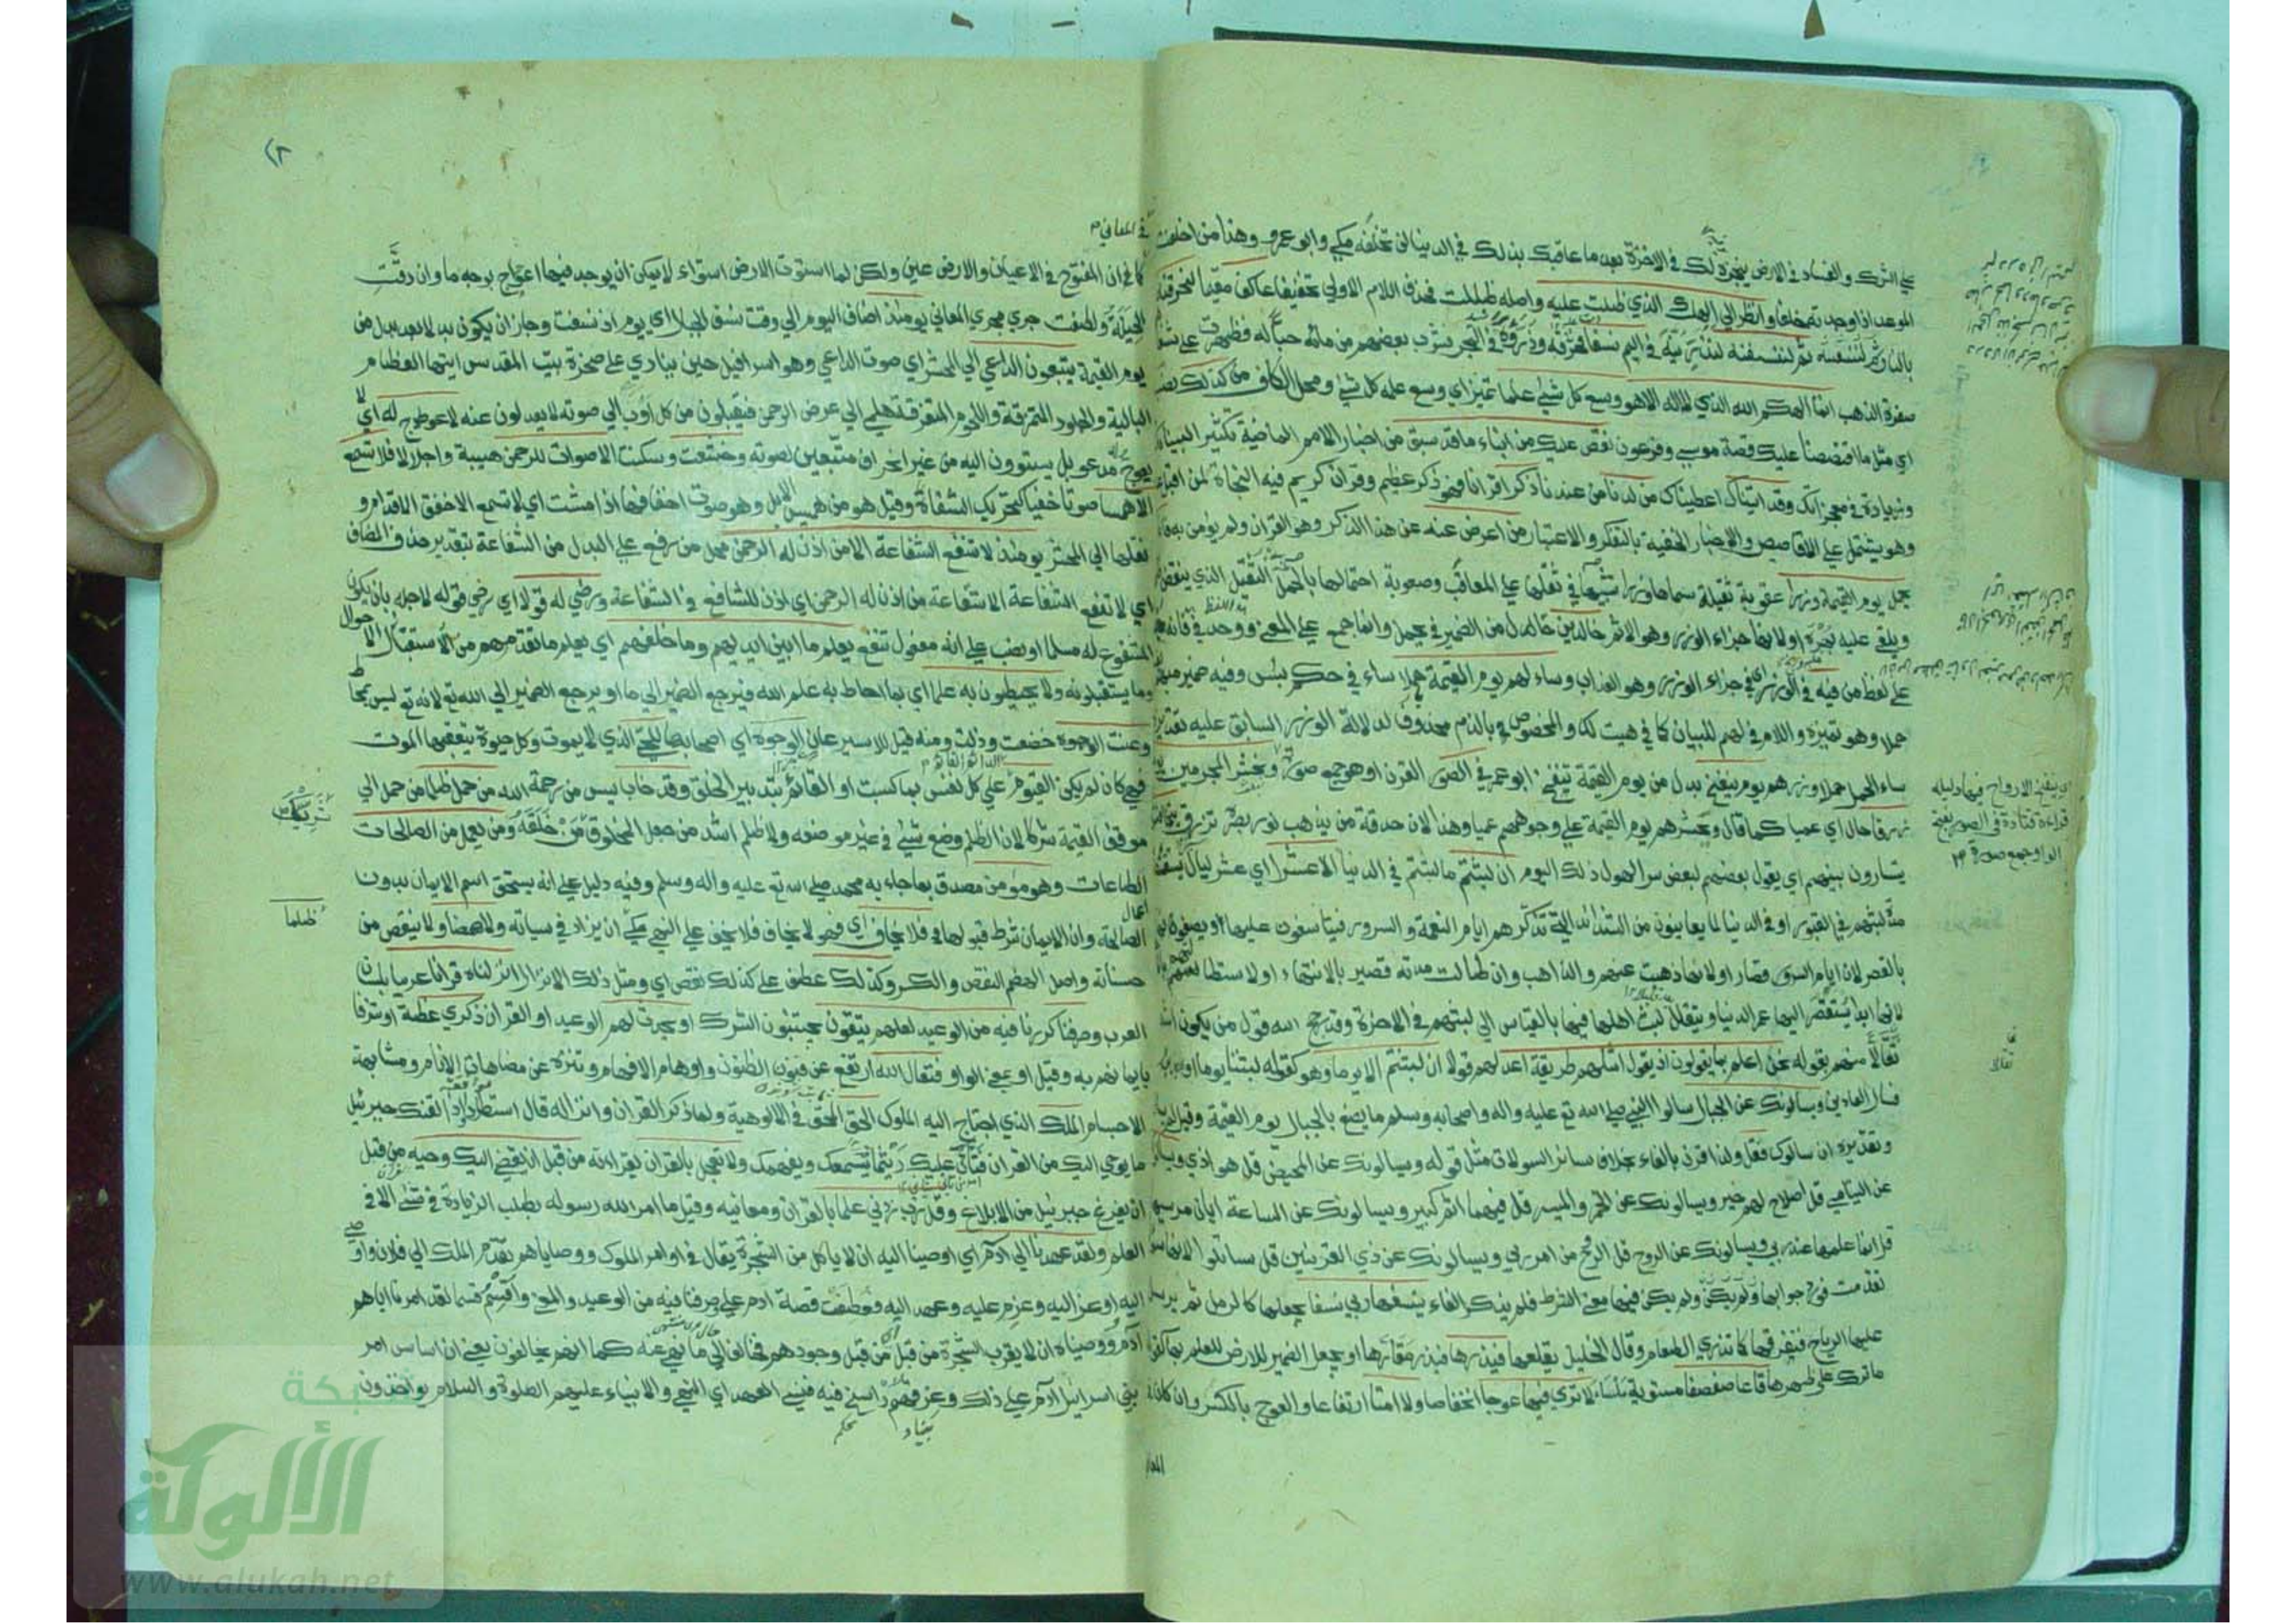 علي الشرك والفساد في الارض ينجزه لك في الاخرة بعد ما عاقبك بذلك في الدنيا لن تخلفه مكي وابو عمرو وهذا من اخلفت
الموعد اذا وجدته خلفا وانظر الي الهك الذي ظلت عليه واصله ظللت فحذف اللام الاولي تخفيفا عاكفا مقيما لنحرقنه
بالنار ثم لننسفنه لنذرينه في اليم نسفا فحرقه وذراه في البحر فشرب بعضهم من مائه حبا له فظهرت علي
صفرة الذهب انما الهكم الله الذي لا اله الا هو وسع كل شيء علما تميز اي وسع علمه كل شيء ومحل الكاف من كذلك نصب
اي مثل ما اقتصصنا عليك قصة موسي وفرعون نقص عليك من انباء ما قد سبق من اخبار الامم الماضية تكثيرا لبيناتك
وزيادة في معجزاتك وقد اتيناك اعطيناك من لدنا من عندنا ذكرا قرانا فهو ذكر عظيم وقران كريم فيه النجاة لمن اقبل
وهو يشتمل علي الاقاصيص والاخبار الحقيقة بالتفكر والاعتبار من اعرض عنه عن هذا الذكر وهو القران ولم يؤمن به فانه
يحمل يوم القيمة وزرا عقوبة ثقيلة سماها وزرا تشبيها في ثقلها علي المعاقب وصعوبة احتمالها بالحمل الثقيل الذي ينقض
ويلقي عليه بهره او لانها جزاء الوزر وهو الاثم خالدين حال من الضمير في يحمل وانما جمع علي المعني ووحد في فانه
علي لفظ من فيه في الوزر اي في جزاء الوزر وهو العذاب وساء لهم يوم القيمة حملا ساء في حكم بئس وفيه ضمير مبهم
حملا وهو تميزه واللام في لهم للبيان كما في هيت لك والمخصوص بالذم محذوف لدلالة الوزر السابق عليه تقديره
ساء الحمل حملا وزرهم يوم ينفخ بدل من يوم القيمة ننفخ ابو عمرو في الصور القرن او هو جمع صورة ونحشر المجرمين
زرقا حال اي عميا كما قال ونحشرهم يوم القيمة علي وجوههم عميا وهذا لان حدقة من يذهب نور بصره تزرق
يتسارون بينهم اي يقول بعضهم لبعض سرا لهول ذلك اليوم ان لبثتم ما لبثتم في الدنيا الا عشرا اي عشر ليال
مدة لبثهم في القبور او في الدنيا لما يعاينون من الشدائد التي تذكرهم ايام النعمة والسرور فيتاسفون عليها او يصفونها
بالقصر لان ايام السرور قصار او لانها ذهبت عنهم والذاهب وان طالت مدته قصير بالانتهاء او لاستطالتهم
لانها ابدا يستقصر اليها عمر الدنيا ويتقلل لبث اهلها فيها بالقياس الي لبثهم في الاخرة وقد رجح الله قول من يكون اشد
تقالا منهم بقوله نحن اعلم بما يقولون اذ يقول امثلهم طريقة اعدلهم قولا ان لبثتم الا يوما وهو كقوله لبثنا يوما او بعض
فسل العادين ويسالونك عن الجبال سالوا النبي صلي الله تع عليه واله واصحابه وسلم ما يصنع بالجبال يوم القيمة وقيل
وتقديره ان سالوك فقل ولذا قرن بالفاء بخلاف سائر السوالات مثل قوله ويسالونك عن المحيض قل هو اذي ويسالونك
عن اليتامي قل اصلاح لهم خير ويسالونك عن الخمر والميسر قل فيهما اثم كبير ويسالونك عن الساعة ايان مرسيها
قل انما علمها عند ربي ويسالونك عن الروح قل الروح من امر ربي ويسالونك عن ذي القرنين قل ساتلو لانها
تقدمت فورد جوابها ولم يكن فيها معني الشرط فلم يذكر الفاء ينسفها ربي نسفا يجعلها كالرمل ثم يرسل
عليها الرياح فتفرقها كما تذري الطعام وقال الخليل يقلعها فيذرها فيذر مقارها او يجعل الضمير للارض للعلم بها كقوله
ما ترك علي ظهرها قاعا صفصفا مستوية ملساء لا تري فيها عوجا انخفاضا ولا امتا ارتفاعا والعوج بالكسر وان كان
المعاني
ينفخ الارواح فيها دليله
قراءة قتادة في الصور بفتح
الواو جمع صورة ١٢
في المعاني
كما في ان المفتوح في الاعيان والارض عين ولكن لما استوت الارض استواء لا يمكن ان يوجد فيها اعوجاج بوجه ما وان دقت
الحيلة ولطفت جري مجري المعاني يومئذ اضاف اليوم الي وقت نسف الجبال اي يوم اذ نسفت وجاز ان يكون بدلا بعد بدل من
يوم القيمة يتبعون الداعي الي المحشر اي صوت الداعي وهو اسرافيل حين ينادي علي صخرة بيت المقدس ايتها العظام
البالية والجلود المتمزقة واللحوم المتفرقة هلمي الي عرض الرحمن فيقبلون من كل اوب الي صوته لا يعدلون عنه لا عوج له اي لا
يعوج له مدعو بل يستوون اليه من غير انحراف متبعين لصوته وخشعت وسكنت الاصوات للرحمن هيبة واجلالا فلا تسمع
الا همسا صوتا خفيا كتحريك الشفاة وقيل هو من هميس الابل وهو صوت اخفافها اذا مشت اي لا تسمع الا خفق الاقدام و
نقلها الي المحشر يومئذ لا تنفع الشفاعة الا من اذن له الرحمن محل من رفع علي البدل من الشفاعة بتقدير حذف المضاف
اي لا تنفع الشفاعة الا شفاعة من اذن له الرحمن اي اذن للشافع في الشفاعة ورضي له قولا اي رضي قوله لاجله بان يكون
المشفوع له مسلما او نصب علي انه مفعول تنفع يعلم ما بين ايديهم وما خلفهم اي يعلم ما تقدمهم من الاحوال
وما يستقبلونه ولا يحيطون به علما اي بما احاط به علم الله فيرجع الضمير الي ما او يرجع الضمير الي الله تع لانه تع ليس بمحاط
وعنت الوجوه خضعت وذلت ومنه قيل للاسير عان الوجوه اي اصحابها للحي الذي لا يموت وكل حيوة يتعقبها الموت
فهي كان لم يكن القيوم علي كل نفس بما كسبت او القائم بتدبير الخلق وقد خاب يئس من رحمة الله من حمل ظلما من حمل الي
موقف القيمة شركا لان الظلم وضع شيء في غير موضعه ولا ظلم اشد من جعل المخلوق من خلقه ومن يعمل من الصالحات
الطاعات وهو مؤمن مصدق بما جاء به محمد صلي الله تع عليه واله وسلم وفيه دليل علي انه يستحق اسم الايمان بدون
الاعمال الصالحة وان الايمان شرط قبولها فلا يخاف اي فهو لا يخاف فلا يخف علي النهي مكي ان يزاد في سياته ولا هضما ولا ينقص من
حسناته واصل الهضم النقص والكسر وكذلك عطف علي كذلك نقص اي ومثل ذلك الانزال انزلناه قرانا عربيا بلسان
العرب وصرفنا كررنا فيه من الوعيد لعلهم يتقون يجتنبون الشرك او يحدث لهم الوعيد او القران ذكري عظة او شرفا
بايمانهم به وقيل او بمعني الواو فتعال الله ارتفع عن فنون الظنون واوهام الافهام وتنزه عن مضاهات الانام ومشابهة
الاجسام الملك الذي احتاج اليه الملوك الحق المحق في الالوهية ولما ذكر القران وانزاله قال استطرادا واذا لقنك جبرئيل
ما يوحي اليك من القران فتان عليك ريثما يسمعك ويفهمك ولا تعجل بالقران بقراءته من قبل ان يقضي اليك وحيه من قبل
ان يفرغ جبرئيل من الابلاغ وقل رب زدني علما بالقران ومعانيه وقيل ما امر الله رسوله بطلب الزيادة في شيء الا في
العلم ولقد عهدنا الي ادم اي اوصينا اليه ان لا ياكل من الشجرة يقال في اوامر الملوك ووصاياهم تقدم الملك الي فلان واوصي
اليه واوعز اليه وعزم عليه وعهد اليه فعطفت قصة ادم علي وصرفنا فيه من الوعيد والمعني واقسم قسما لقد امرنا اباهم
ادم ووصيناه ان لا يقرب الشجرة من قبل من قبل وجودهم فخالف الي ما نهي عنه كما انهم يخالفون يعني ان اساس امر
بني اسرائيل ادم علي ذلك وعزمهم راسخ فيه فنسي العهد اي النهي والانبياء عليهم الصلوة والسلام يواخذون
ظلما
شبكة
الألوكة
www.alukah.net